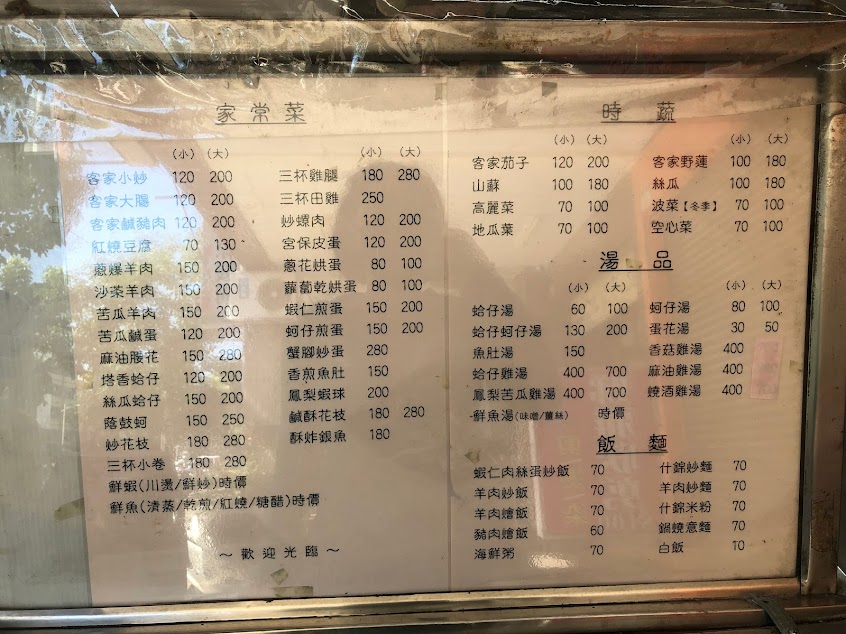 家常菜
(小) (大)
客家小炒 120 200
客家大腸 120 200
客家鹹豬肉 120 200
紅燒豆腐 70 130
蔥爆羊肉 150 200
沙茶羊肉 150 200
苦瓜羊肉 150 200
苦瓜鹹蛋 120 200
麻油腰花 150 280
塔香蛤仔 120 200
絲瓜蛤仔 150 200
蔭鼓蚵 150 250
炒花枝 180 280
三杯小卷 180 280
鮮蝦(川燙/鮮炒)時價
鮮魚(清蒸/乾煎/紅燒/糖醋)時價
(小) (大)
三杯雞腿 180 280
三杯田雞 250
炒螺肉 120 200
宮保皮蛋 120 200
蔥花烘蛋 80 100
蘿蔔乾烘蛋 80 100
蝦仁煎蛋 150 200
蚵仔煎蛋 150 200
蟹腳炒蛋 280
香煎魚肚 150
鳳梨蝦球 200
鹹酥花枝 180 280
酥炸銀魚 180
～歡迎光臨～
時蔬
(小) (大) (小) (大)
客家茄子 120 200 客家野蓮 100 180
山蘇 100 180 絲瓜 100 180
高麗菜 70 100 波菜【冬季】 70 100
地瓜菜 70 100 空心菜 70 100
湯品
(小) (大) (小) (大)
蛤仔湯 60 100 蚵仔湯 80 100
蛤仔蚵仔湯 130 200 蛋花湯 30 50
魚肚湯 150 香菇雞湯 400
蛤仔雞湯 400 700 麻油雞湯 400
鳳梨苦瓜雞湯 400 700 燒酒雞湯 400
鮮魚湯(味噌/薑絲) 時價
飯麵
蝦仁肉絲蛋炒飯 70 什錦炒麵 70
羊肉炒飯 70 羊肉炒麵 70
羊肉燴飯 70 什錦米粉 70
豬肉燴飯 60 鍋燒意麵 70
海鮮粥 70 白飯 10